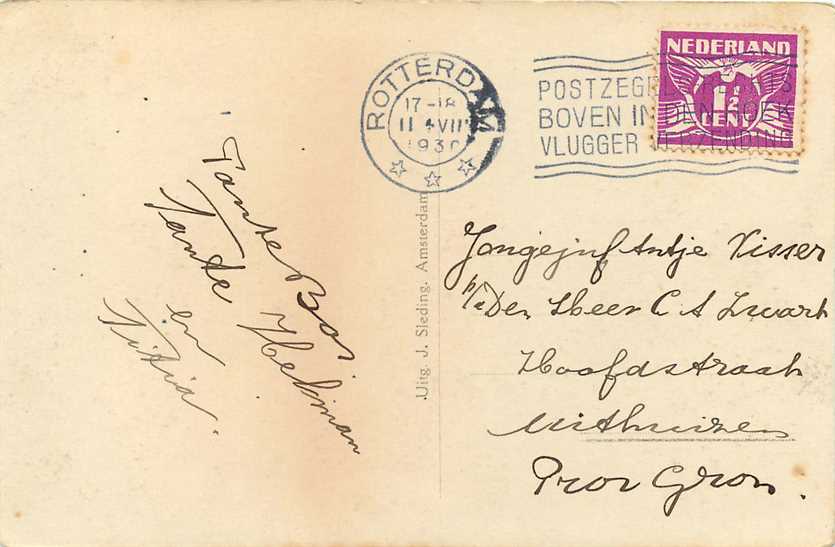 NEDERLAND
1½
CENT
ROTTERDAM
17-18
11 VII
1930
POSTZEGEL RECHTS
BOVEN IN DEN HOEK
VLUGGER VERZENDING
Tante Bos
Tante Hekman
en
Titia.
Uitg. J. Sleding. Amsterdam
Jongejuf Antje Visser
p/a Den Heer C A Zwart
Hoofdstraat
Uithuizen
Prov Gron.